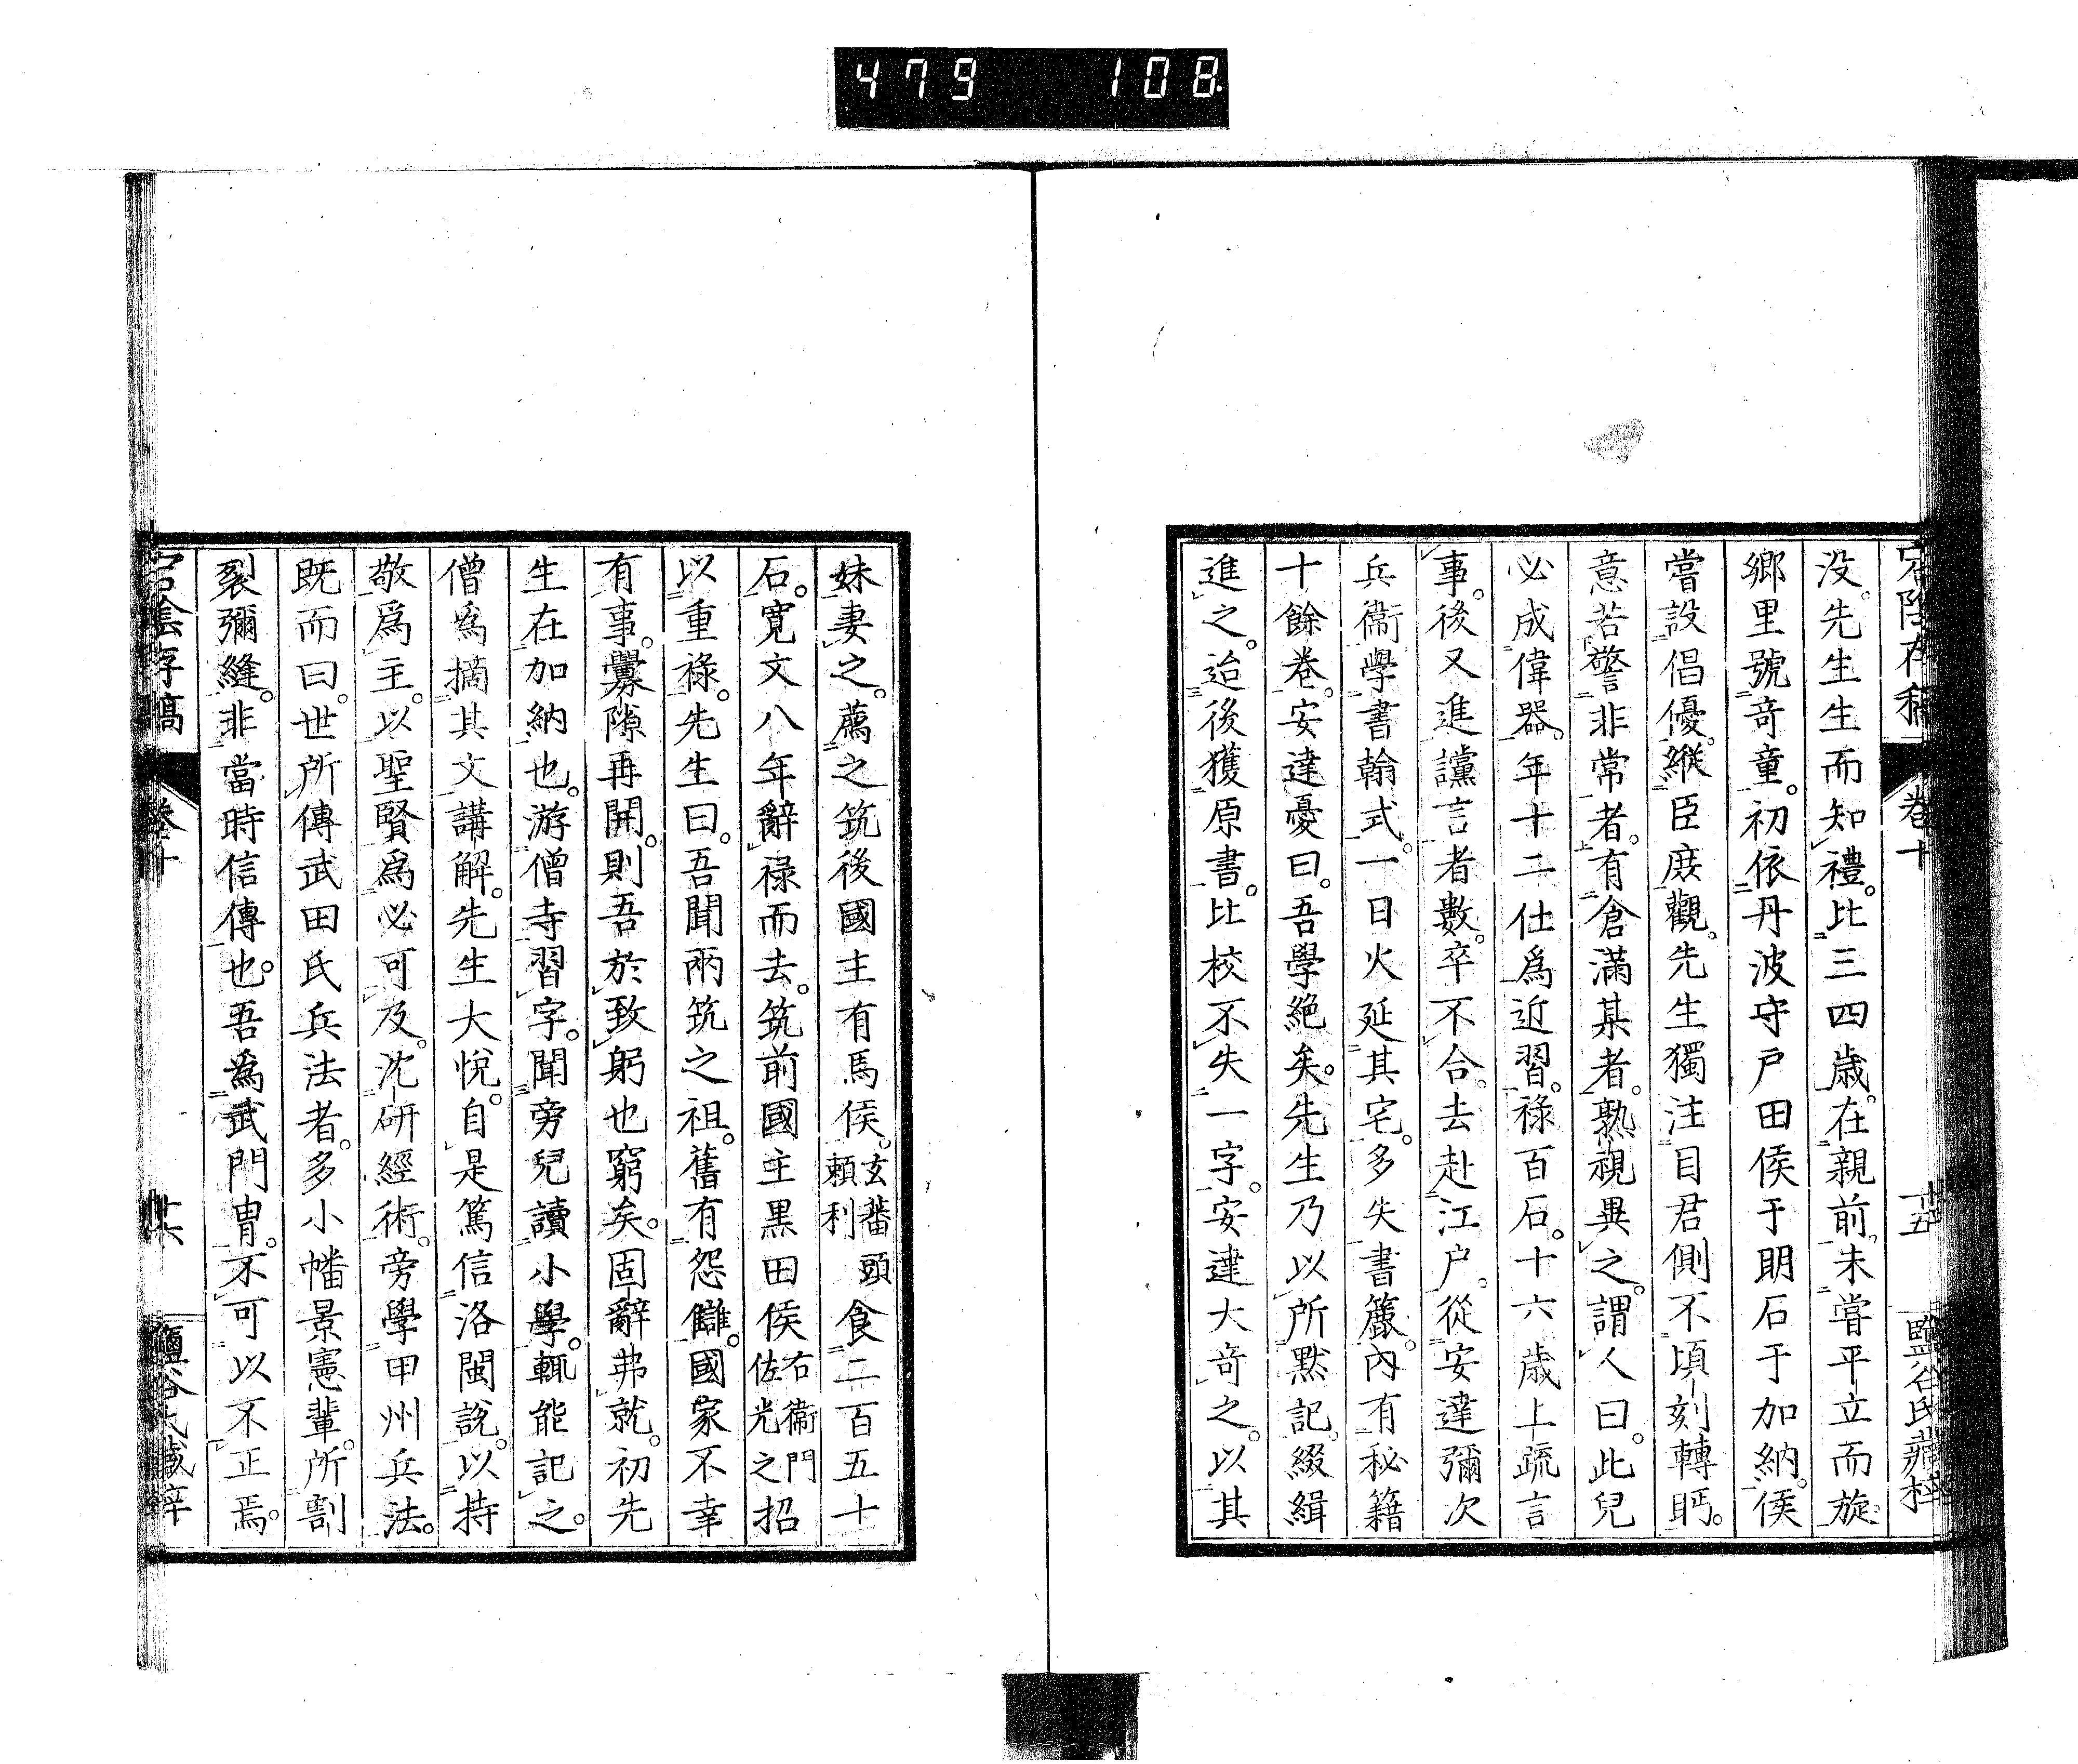 479 108
宕陰存稿 卷十 廿五 鹽谷氏藏梓
没。先生生而知禮。比三四歲。在親前。未嘗平立而旋。
鄉里號奇童。初依丹波守戸田侯于明石于加納。侯
嘗設倡優。縱臣庶觀。先生獨注目君側不頃刻轉眄。
意若警非常者。有倉滿某者。熟視異之。謂人曰。此兒
必成偉器。年十二仕爲近習。祿百石。十六歲上疏言
事。後又進讜言者數。卒不合。去赴江戸。從安達彌次
兵衞。學書翰式。一日火延其宅。多失書簏。內有秘籍
十餘卷。安達憂曰。吾學絶矣。先生乃以所默記。綴緝
進之。迨後獲原書。比校不失一字。安達大奇之。以其
妹妻之。薦之筑後國主有馬侯。玄蕃頭頼利食二百五十
石。寛文八年辭祿而去。筑前國主黒田侯右衞門佐光之招
以重祿。先生曰。吾聞兩筑之祖。舊有怨讎。國家不幸
有事。釁隙再開。則吾於致躬也窮矣。固辭弗就。初先
生在加納也。游僧寺習字。聞旁兒讀小學。輒能記之。
僧爲摘其文講解。先生大悅。自是篤信洛閩說。以持
敬爲主。以聖賢爲必可及。沈研經術。旁學甲州兵法。
既而曰。世所傳武田氏兵法者。多小幡景憲輩。所割
裂彌縫。非當時信傳也。吾爲武門胄。不可以不正焉。
宕陰存稿 卷十 廿六 鹽谷氏藏梓